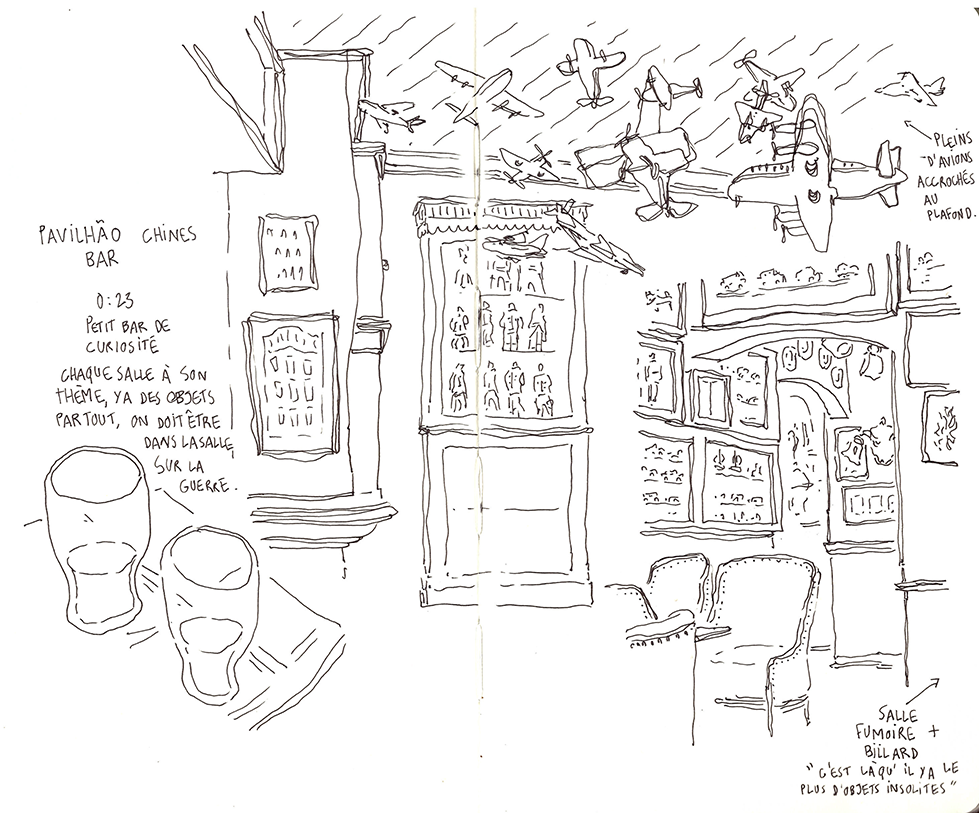 PAVILHÃO CHINES
BAR
0:23
PETIT BAR DE
CURIOSITÉ
CHAQUE SALLE À SON
THÈME, YA DES OBJETS
PARTOUT, ON DOIT ÊTRE
DANS LA SALLE
SUR LA
GUERRE.
PLEINS
D'AVIONS
ACCROCHÉS
AU
PLAFOND.
SALLE
FUMOIRE +
BILLARD
"C'EST LÀ QU'IL YA LE
PLUS D'OBJETS INSOLITES"